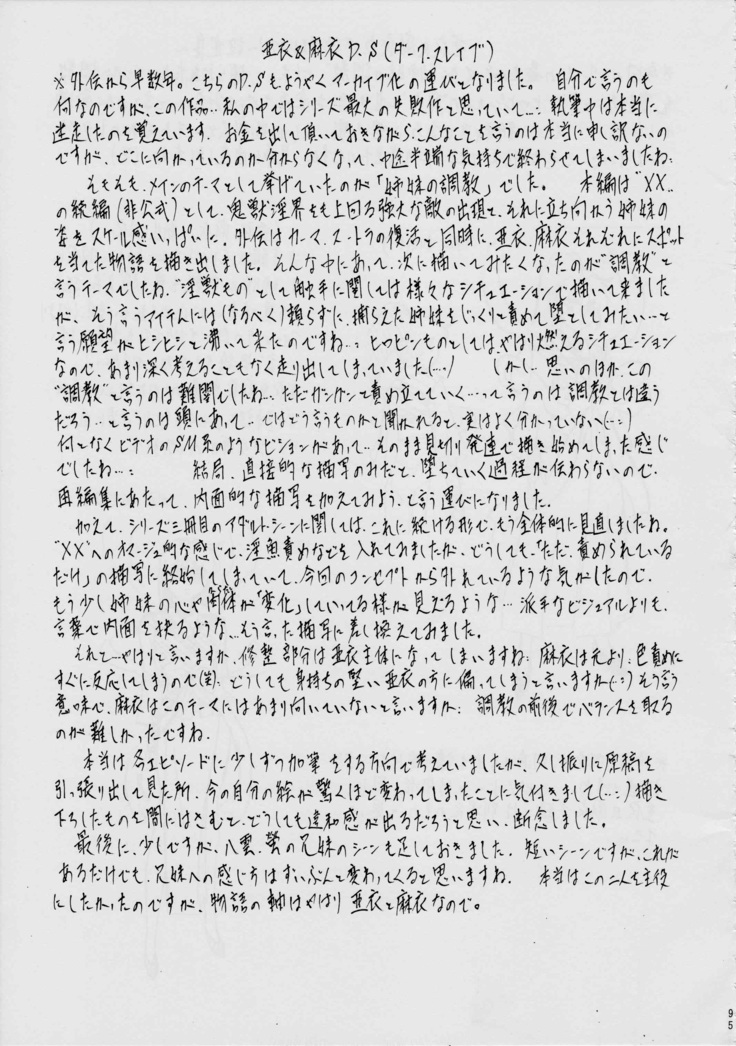 亜衣&麻衣D.S(ダーク.スレイブ)
※外伝から早数年。こちらのD.Sもようやくアーカイブ化の運びとなりました。 自分で言うのも
何なのですが、この作品‥私の中ではシリーズ最大の失敗作と思っていて…:執筆中は本当に
迷走したのを覚えています. お金を出して頂いておきながら、こんなことを言うのは本当に申し訳ないの
ですが、どこに向かっているのか分からなくなって、中途半端な気持ちで終わらせてしまいましたね:
そもそも、メインのテーマとして挙げていたのが「姉妹の調教」でした。 本編は"XX‥
の続編(非公式)として、鬼獣淫界をも上回る強大な敵の出現と、それに立ち向かう姉妹の
姿をスケール感いっぱいに、外伝はカーマ.スートラの復活と同時に、亜衣、麻衣それぞれにスポット
を当てた物語を描き出しました。そんな中にあって、次に描いてみたくなったのが"調教"と
言うテーマでしたね."淫獣もの"として触手に関しては様々なシチュエーションで描いて来ました
が、そう言うアイテムには(なるべく)頼らずに、捕らえた姉妹をじっくりと責めて堕としてみたい…と
言う願望がヒシヒシと湧いて来たのですね…:ヒロピンものとしては、やはり燃えるシチュエーション
なので、あまり深く考えることもなく走り出してしまっていました(…) しかし‥思いのほか、この
"調教"と言うのは難関でしたね…ただガンガンと責め立てていく…って言うのは調教とは違う
だろう‥と言うのは頭にあって‥ではどう言うものかと聞かれると、実はよく分かっていない(…:)
何となくビデオのSM系のようなビジョンがあって‥そのまま見切り発進で描き始めてしまった感じ
でしたね…: 結局、直接的な描写のみだと、堕ちていく過程が伝わらないので、
再編集にあたって、内面的な描写を加えてみよう、と言う運びになりました.
加えて、シリーズ三冊目のアダルトシーンに関しては、これに続ける形で、もう全体的に見直しましたね。
"XX"へのオマージュ的な感じで、淫魚責めなどを入れてみましたが、どうしても、「ただ、責められている
だけ」の描写に終始してしまっていて、今回のコンセプトから外れているような気がしたので、
もう少し姉妹の心や肉体が「変化」していってる様が見えるような… 派手なビジュアルよりも、
言葉で内面を抉るような‥そう言った描写に差し換えてみました。
それと…やはりと言いますか、修整部分は亜衣主体になってしまいますね: 麻衣は元より、色責めに
すぐに反応してしまうので(笑)、どうしても身持ちの堅い亜衣の方に偏ってしまうと言いますか(…:)そう言う
意味で、麻衣はこのテーマにはあまり向いていないと言いますか: 調教の前後でバランスを取る
のが難しかったですね.
本当は各エピソードに少しずつ加筆をする方向で考えていましたが、久し振りに原稿を
引っ張り出して見た所、今の自分の絵が驚くほど変わってしまったことに気付きまして(…:)描き
下ろしたものを間にはさむと、どうしても違和感が出るだろうと思い、断念しました。
最後に、少しですが、八雲、蛍の兄妹のシーンも足しておきました. 短いシーンですが、これが
あるだけでも、兄妹への感じ方はずいぶんと変わってくると思いますね. 本当はこの二人を主役
にしたかったのですが、物語の軸はやはり亜衣と麻衣なので。
95